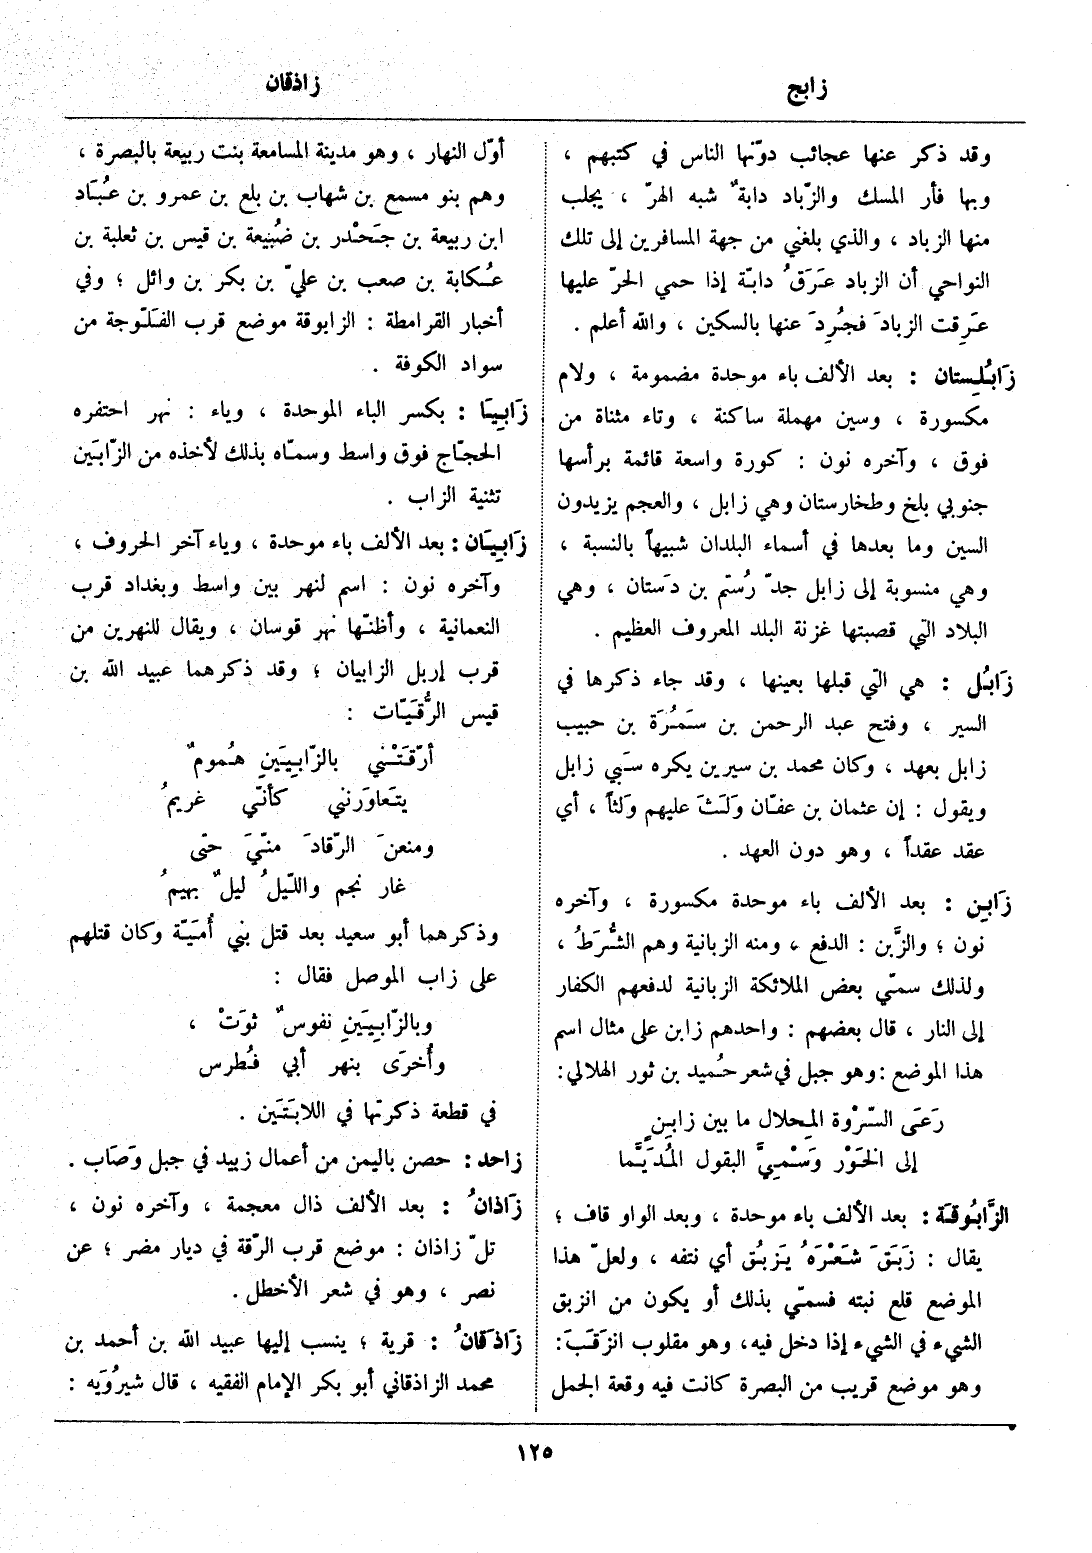 زابج
زاذقان
وقد ذكر عنها عجائب دوّنها الناس في كتبهم ،
وبها فأر المسك والزّباد دابةٌ شبه الهرّ ، يجلب
منها الزباد ، والذي بلغني من جهة المسافرين إلى تلك
النواحي أن الزباد عَرَقُ دابّة إذا حمي الحرّ عليها
عَرِقت الزبادَ فجُرِدَ عنها بالسكين ، والله أعلم .
زَابُلِستان : بعد الألف باء موحدة مضمومة ، ولام
مكسورة ، وسين مهملة ساكنة ، وتاء مثناة من
فوق ، وآخره نون : كورة واسعة قائمة برأسها
جنوبي بلخ وطخارستان وهي زابل ، والعجم يزيدون
السين وما بعدها في أسماء البلدان شبيهاً بالنسبة ،
وهي منسوبة إلى زابل جدّ رُستَم بن دَستان ، وهي
البلاد التي قصبتها غزنة البلد المعروف العظيم .
زَابُل : هي التي قبلها بعينها ، وقد جاء ذكرها في
السير ، وفتح عبد الرحمن بن سَمُرَة بن حبيب
زابل بعهد ، وكان محمد بن سيرين يكره سَبي زابل
ويقول : إن عثمان بن عفّان وَلَثَ عليهم وَلثاً ، أي
عقد عقداً ، وهو دون العهد .
زَابِن : بعد الألف باء موحدة مكسورة ، وآخره
نون ؛ والزَّبن : الدفع ، ومنه الزبانية وهم الشُّرَطُ ،
ولذلك سمّي بعض الملائكة الزبانية لدفعهم الكفار
إلى النار ، قال بعضهم : واحدهم زابن على مثال اسم
هذا الموضع : وهو جبل في شعر حُميد بن ثور الهلالي :
رَعَى السَّرْوة المِحلال ما بين زابِنٍ
إلى الخَوْر وَسْمِيَّ البقول المُدَيَّما
الزَّابُوقَة : بعد الألف باء موحدة ، وبعد الواو قاف ؛
يقال : زَبَقَ شَعْرَهُ يَزبُق أي نتفه ، ولعلّ هذا
الموضع قلع نبته فسمّي بذلك أو يكون من انزبق
الشيء في الشيء إذا دخل فيه، وهو مقلوب انزَقَبَ :
وهو موضع قريب من البصرة كانت فيه وقعة الجمل
أوّل النهار ، وهو مدينة المسامعة بنت ربيعة بالبصرة ،
وهم بنو مسمع بن شهاب بن بلع بن عمرو بن عُبَاد
ابن ربيعة بن جَحْدر بن ضُبيعة بن قيس بن ثعلبة بن
عُكابة بن صعب بن عليّ بن بكر بن وائل ؛ وفي
أخبار القرامطة : الزابوقة موضع قرب الفَلّوجة من
سواد الكوفة .
زَابِيَا : بكسر الباء الموحدة ، وياء : نهر احتفره
الحجّاج فوق واسط وسمّاه بذلك لأخذه من الزّابَين
تثنية الزاب .
زَابِيَان : بعد الألف باء موحدة ، وياء آخر الحروف ،
وآخره نون : اسم لنهر بين واسط وبغداد قرب
النعمانية ، وأظنّها نهر قوسان ، ويقال للنهرين من
قرب إربل الزابيان ؛ وقد ذكرهما عبيد الله بن
قيس الرُّقَيّات :
أرّقَتْني بالزّابِيَينِ هُمومٌ
يتَعاوَرنني كأنّي غريمُ
ومنعنَ الرّقادَ منّيَ حتى
غار نجم والليلُ ليلٌ بهيمُ
وذكرهما أبو سعيد بعد قتل بني أُمَيّة وكان قتلهم
على زاب الموصل فقال :
وبالزّابِيَينِ نفوسٌ ثوَتْ ،
وأُخرَى بنهر أبي فُطرس
في قطعة ذكرتها في اللابَتَين .
زاحد : حصن باليمن من أعمال زبيد في جبل وَصَاب .
زَاذانُ : بعد الألف ذال معجمة ، وآخره نون ،
تلّ زاذان : موضع قرب الرّقة في ديار مضر ؛ عن
نصر ، وهو في شعر الأخطل .
زَاذَقَانُ : قرية ؛ ينسب إليها عبيد الله بن أحمد بن
محمد الزاذقاني أبو بكر الإمام الفقيه ، قال شيرُوَيه :
١٢٥